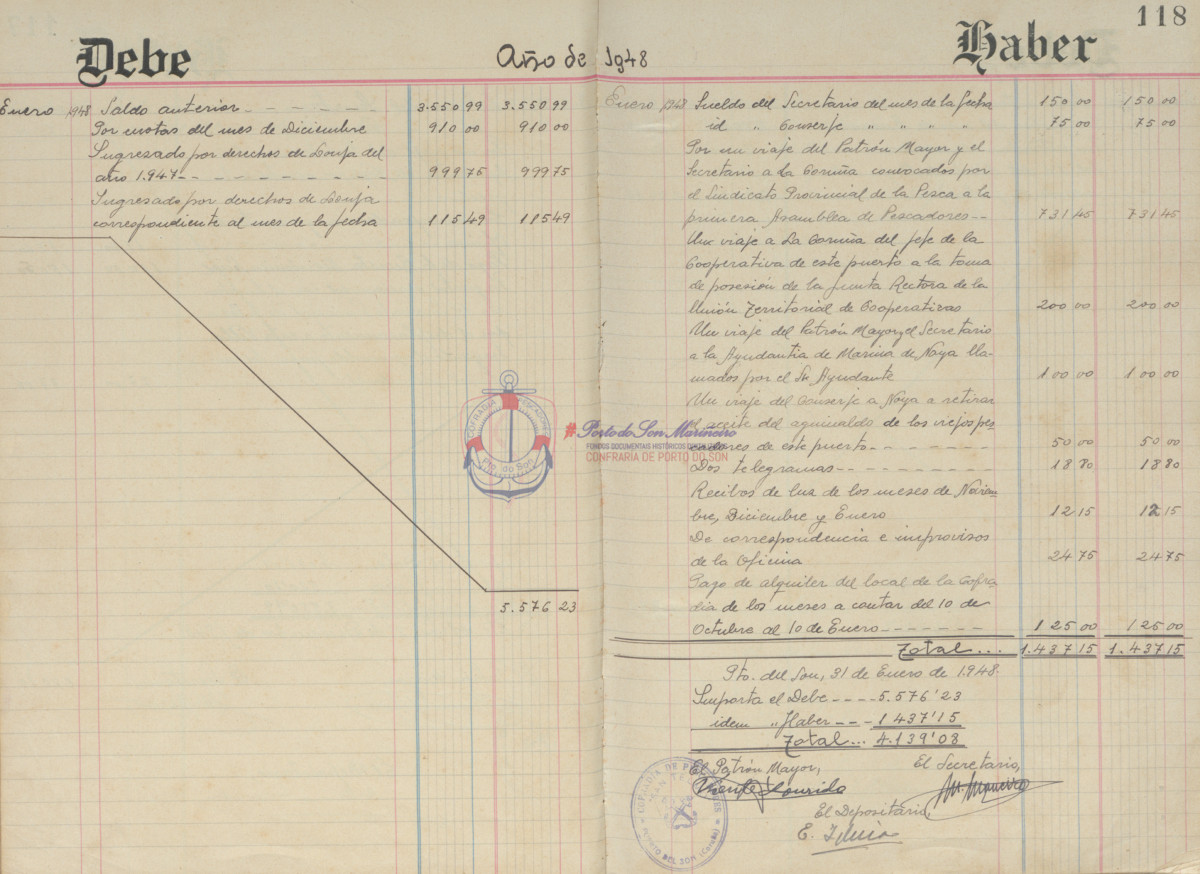 118
Debe
Año de 1948
Haber
Enero 1948 Saldo anterior - - - - - - 3.550 99 3.550 99
Por motas del mes de Diciembre 910 00 910 00
Ingresado por derechos de Lonja del
año 1.947 - - - - - - - - - - 999 75 999 75
Ingresado por derechos de Lonja
correspondiente al mes de la fecha 115 49 115 49
5.576 23
Enero 1948 Sueldo del Secretario del mes de la fecha 150 00 150 00
id " Conserje " " " " 75 00 75 00
Por un viaje del Patrón Mayor y el
Secretario a la Coruña convocados por
el Sindicato Provincial de la Pesca a la
primera Asamblea de Pescadores - - 731 45 731 45
Un viaje a La Coruña del jefe de la
Cooperativa de este puerto a la toma
de posesión de la junta Rectora de la
Unión Territorial de Cooperativas 200 00 200 00
Un viaje del Patrón Mayor y el Secretario
a la Ayudantia de Marina de Noya lla-
mados por el Sr Ayudante 100 00 100 00
Un viaje del Conserje a Noya a retirar
el aceite del aguinaldo de los viejos pes-
cadores de este puerto - - - - - - - 50 00 50 00
Dos telegramas - - - - - - - - 18 80 18 80
Recibos de luz de los meses de Noviem-
bre, Diciembre y Enero 12 15 12 15
De correspondencia e improvisos
de la Oficina 24 75 24 75
Pago de alquiler del local de la Cofra
dia de los meses a contar del 10 de
Octubre al 10 de Enero - - - - - - - 125 00 125 00
Total... 1.437 15 1.437 15
Pto. del Son, 31 de Enero de 1.948.
Importa el Debe - - - - 5.576'23
idem " Haber - - - 1 437'15
Total... 4.139'08
El Patrón Mayor,
El Secretario,
El Depositario,
COFRADIA PESCADORES
Pto. do Son
# Porto do Son Mariñeiro
FONDOS DOCUMENTAIS HISTÓRICOS
CONFRARÍA DE PORTO DO SON
COFRADIA DE PESCADORES
PUERTO DEL SON (Coruña)